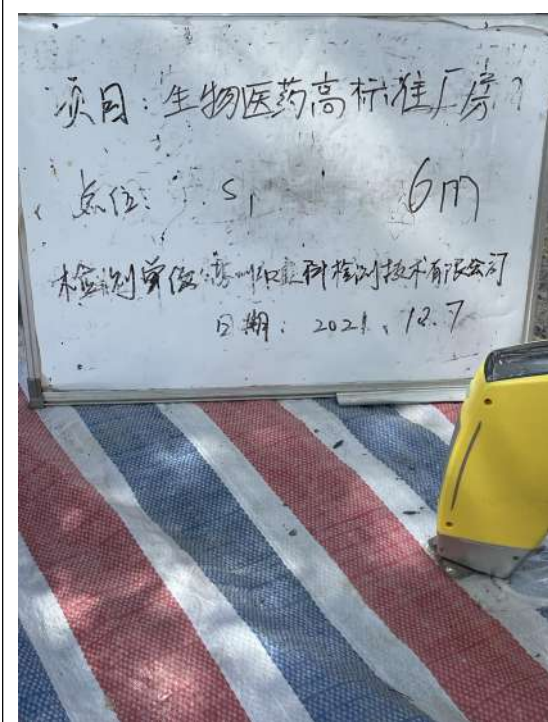 项目:生物医药高标准厂房
点位: S1 6m
检测单位: 检测技术有限公司
日期: 2021.12.7